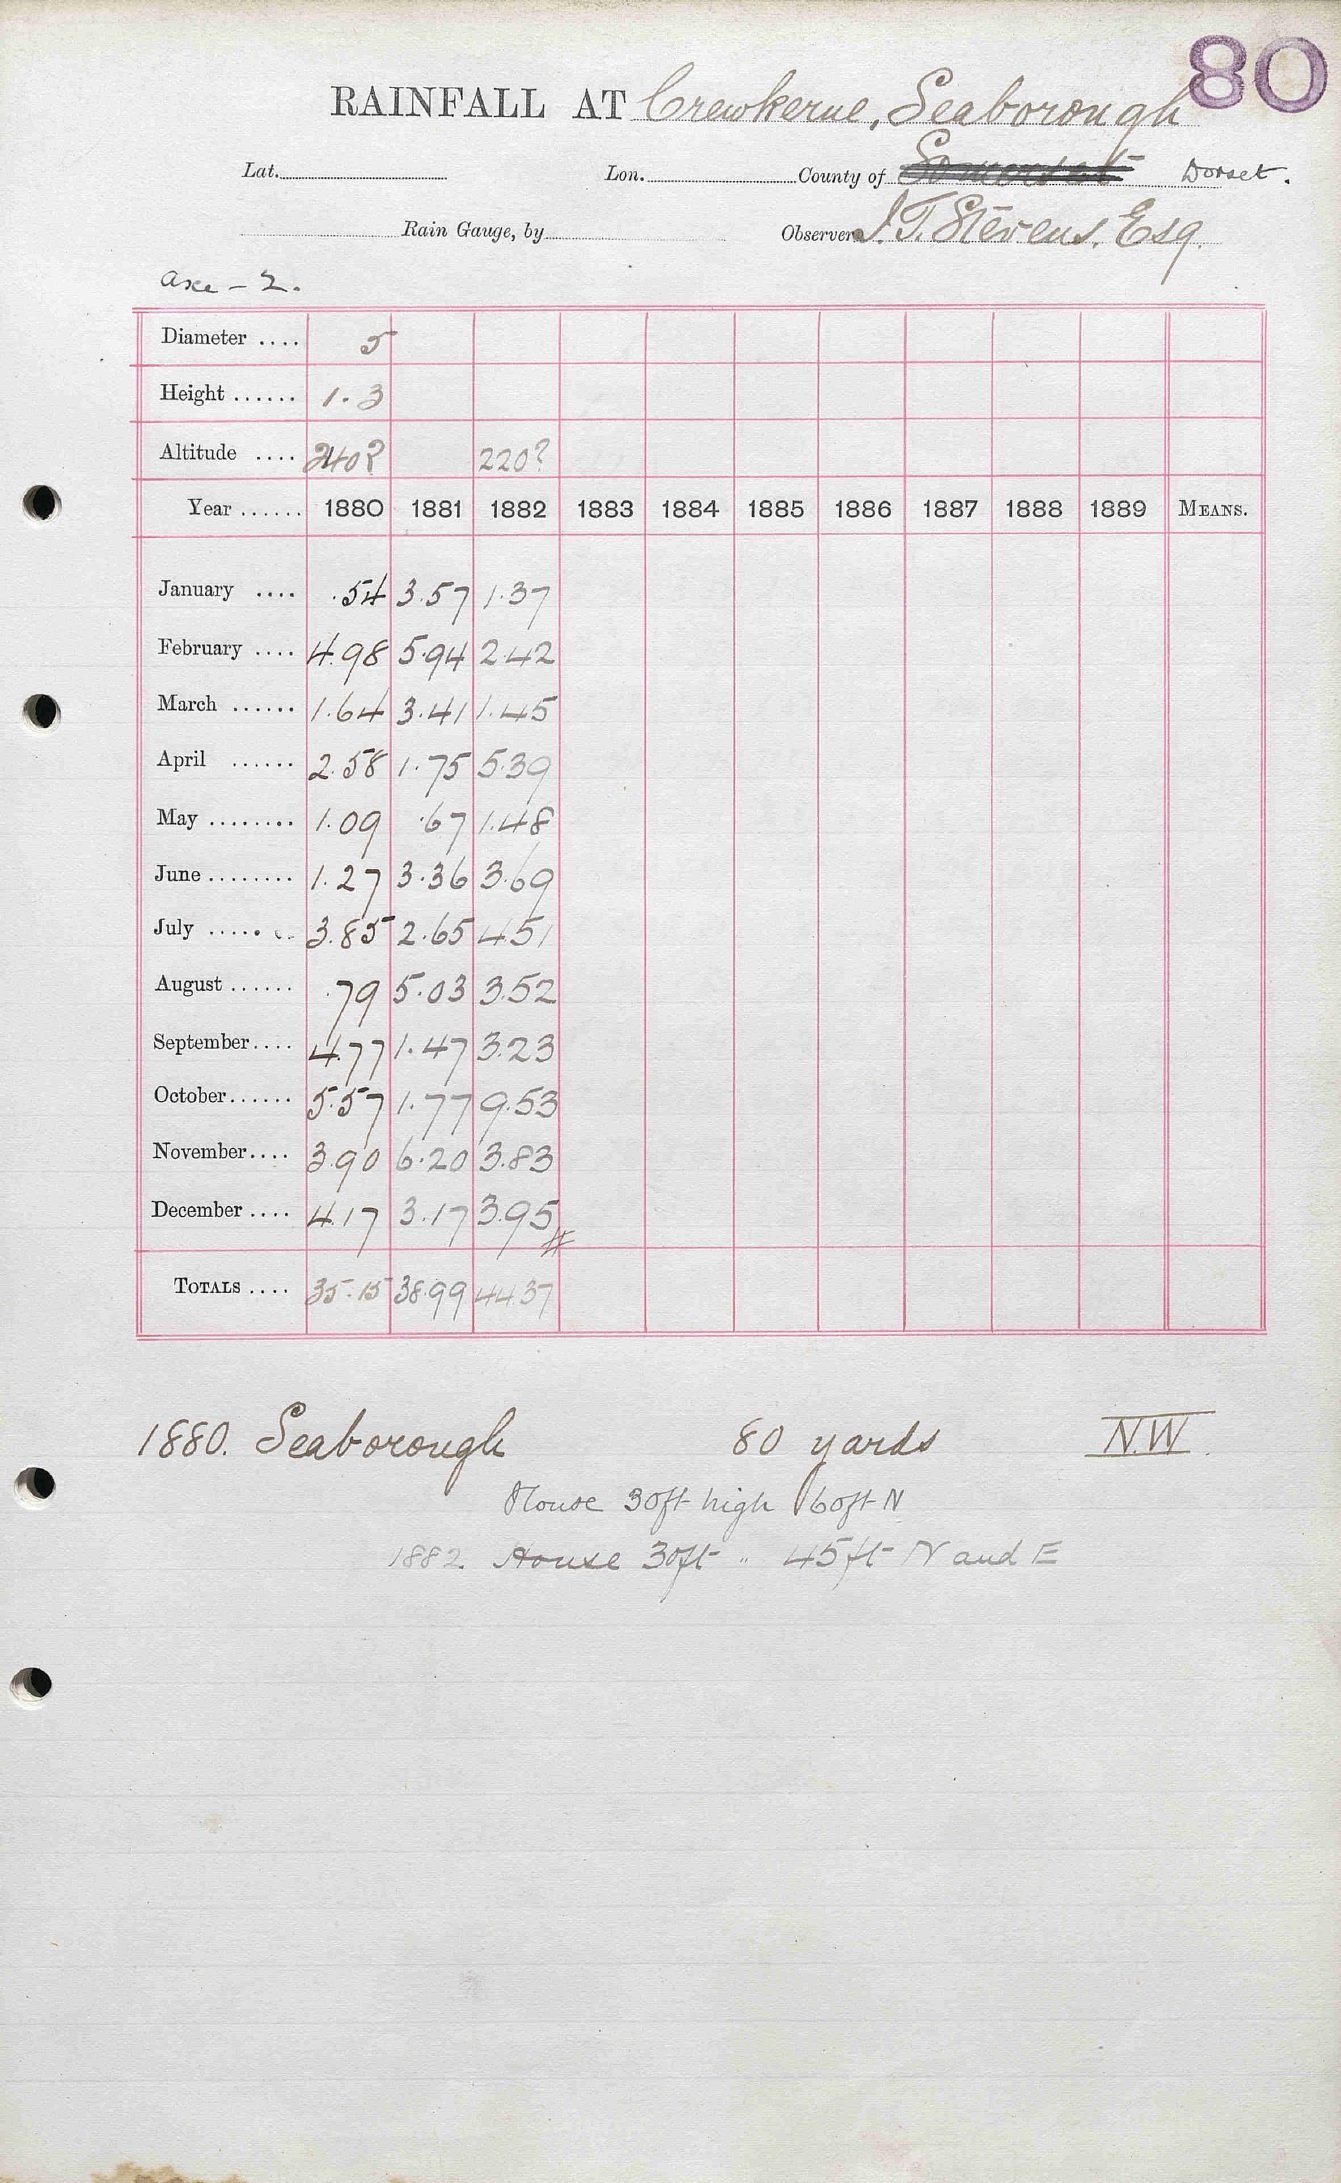 80
RAINFALL AT Crewkerne, Seaborough
Lat. Lon. County of Somerset Dorset.
Rain Gauge, by Observer J. T. Stevens, Esq.
Axe - 2.
Diameter .... 5
Height ...... 1.3
Altitude .... 240? 220?
Year ...... 1880 1881 1882 1883 1884 1885 1886 1887 1888 1889 MEANS.
January .... .54 3.57 1.37
February .... 4.98 5.94 2.42
March ...... 1.64 3.41 1.45
April ...... 2.58 1.75 5.39
May ........ 1.09 .67 1.48
June ........ 1.27 3.36 3.69
July ...... 3.85 2.65 4.51
August ...... .79 5.03 3.52
September.... 4.77 1.47 3.23
October...... 5.57 1.77 9.53
November.... 3.90 6.20 3.83
December .... 4.17 3.17 3.95
TOTALS .... 35.15 38.99 44.37
1880. Seaborough 80 yards N.W.
House 30ft high 60ft N
1882. House 30ft " 45ft N and E